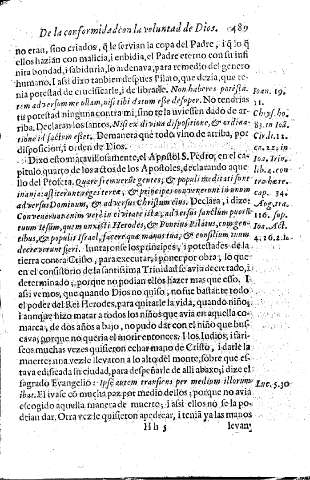 De la conformidad con la voluntad de Dios. 489
no eran, sino criados, q̃ le servian la copa del Padre, i q̃ lo q̃
ellos hazian con malicia, i enbidia, el Padre eterno con su infi
nita bondad, i sabiduria, lo ordenava, para remedio del genero
humano. I assi dixo tanbien despues Pilato, que dezia, que te-
nia potestad de crucificarle, i de librarle. Non haberes potesta-
tem adversum me ullam, nisi tibi datum esset desuper. No tendrias
tu potestad ninguna contra mi, sino te la uviessen dado de ar-
riba, Declaran los santos, Nisi ex divina dispositione, & ordina-
tione id factum esset. De manera que todo vino de arriba, por
disposicion, i orden de Dios.
Dixo esto maravillosamente, el Apostol S. Pedro, en el ca-
pitulo quarto de los actos de los Apostoles, declarando aque
llo del Profeta. Quare fremuerunt gentes, & populi meditati sunt
inania: astiterunt reges terræ, & principes convenerunt in unum
adversus Dominum, & adversus Christum eius. Declara, i dize:
Convenerunt enim verè in civitate ista, adversus sanctum puerũ
tuum Iesum, quem unxisti Herodes, & Pontius Pilatus, cum gen-
tibus, & populis Israel, facere quæ manus tua, & consilium tuum
decreverunt fieri. Iuntaronse los principes, i potestades de la
tierra contra Cristo, para executar, i poner por obra, lo que
en el consistorio de la santissima Trinidad se avia decretado, i
determinado; porque no podian ellos hazer mas que esso. I
assi vemos, que quando Dios no quiso, no fue bastãte todo
el poder del Rei Herodes, para quitarle la vida, quando niño;
i aunque hizo matar a todos los niños que avia en aquella co-
marca, de dos años a bajo, no pudo dar con el niño que bus-
cava; porque no queria el morir entonces. I los Iudios, i fari-
seos muchas vezes quisieron echar mano de Cristo, i darle la
muerte: una vez le llevaron a lo alto del monte, sobre que es-
tava edificada su ciudad, para despeñarle de alli abaxo; i dize el
sagrado Evangelio: Ipse autem transiens per medium illorum
ibat. El ivase cõ mucha paz por medio dellos; porque no avia
escogido aquella manera de muerte; i assi ellos no se la po-
deian dar. Otra vez le quisieron apedrear, i teniã ya las manos
Hh 5 levan-
Ioan. 19,
11.
Chrys. ho.
83. in Ioã.
Cir. li. 12.
ca. 22, in
Ioa, Trin.
lib. 4. con
tra hære.
cap. 34.
Aug. tra.
116. sup.
Ioa. Act.
4, 26. 2. la.
Luc. 5. 30